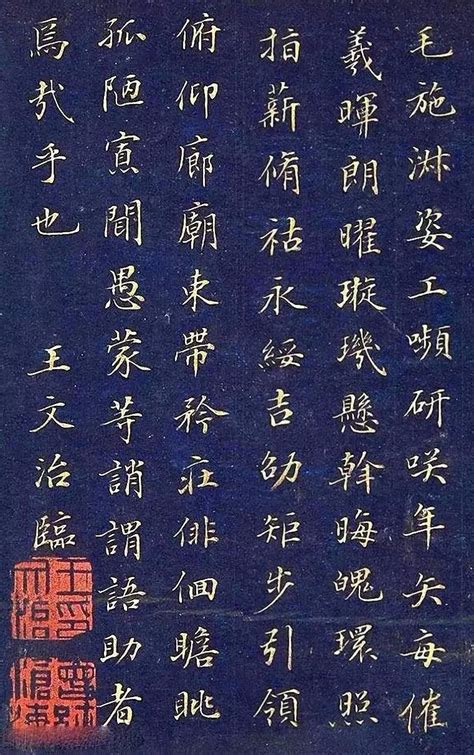 毛施淑姿工嚬研咲年矢每催
羲暉朗曜璇璣懸斡晦魄環照
指薪脩祜永綏吉劭矩步引領
俯仰廊廟束帶矜莊俳佪瞻眺
孤陋寡聞愚蒙等誚謂語助者
焉哉乎也 王文治臨
王印文治
曾經滄海